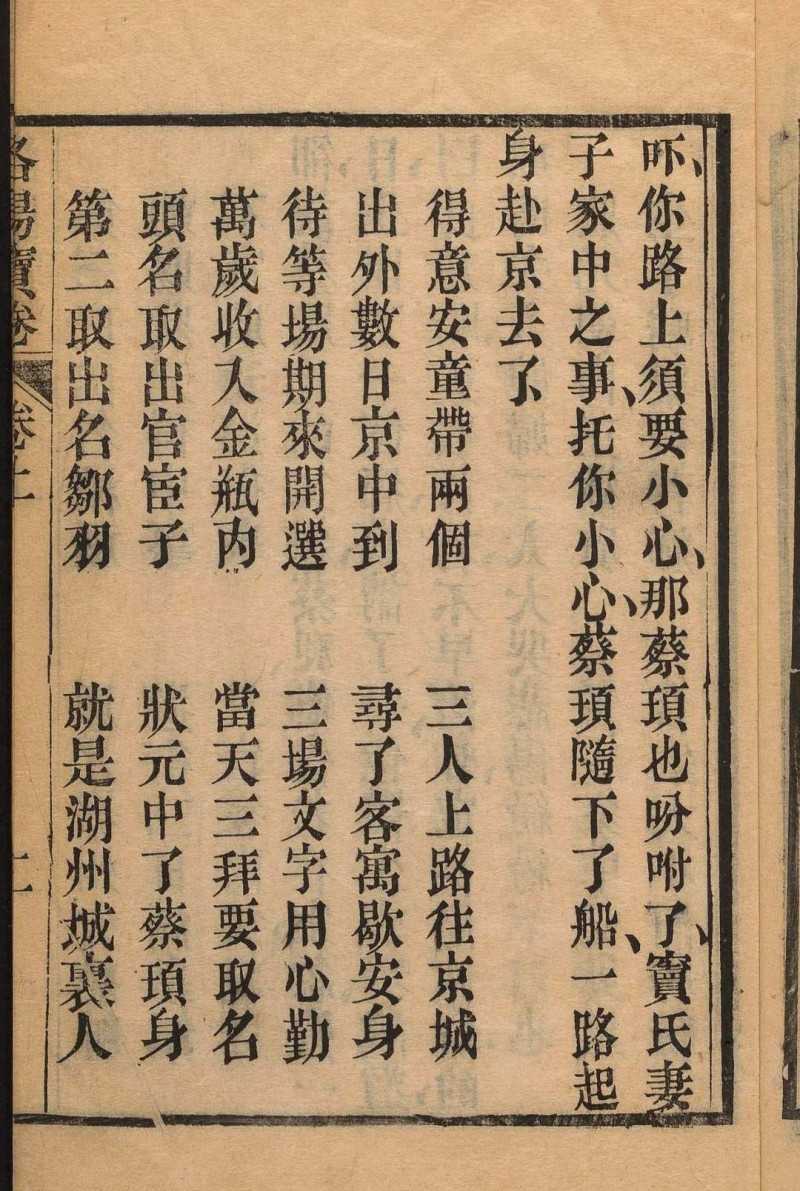 吓、你路上須要小心、那蔡頊也吩咐了、竇氏妻
子家中之事、托你小心、蔡頊隨下了船、一路起
身赴京去了、
得意安童帶兩個　三人上路往京城
出外數日京中到　尋了客寓歇安身
待等場期來開選　三場文字用心勤
萬歲收入金瓶内　當天三拜要取名
頭名取出官宦子　狀元中了蔡頊身
第二取出名鄒羽　就是湖州城裏人
洛陽寶卷　卷上　二